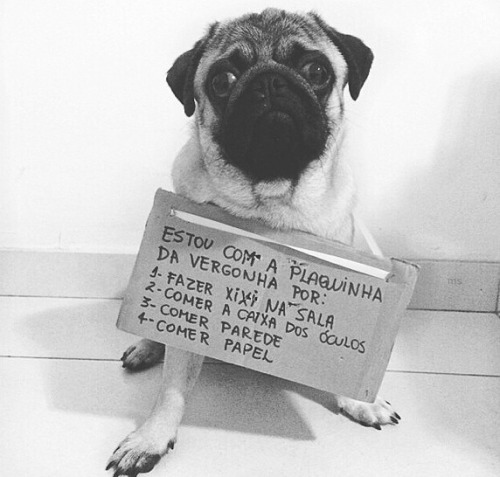 ESTOU COM A PLAQUINHA
DA VERGONHA POR:
1- FAZER XIXI NA SALA
2- COMER A CAIXA DOS ÓCULOS
3- COMER PAREDE
4- COMER PAPEL